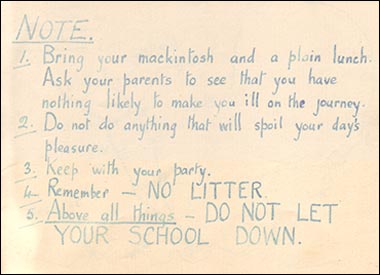 NOTE.
1. Bring your mackintosh and a plain lunch.
Ask your parents to see that you have
nothing likely to make you ill on the journey.
2. Do not do anything that will spoil your day's
pleasure.
3. Keep with your party.
4. Remember – NO LITTER.
5. Above all things – DO NOT LET
YOUR SCHOOL DOWN.